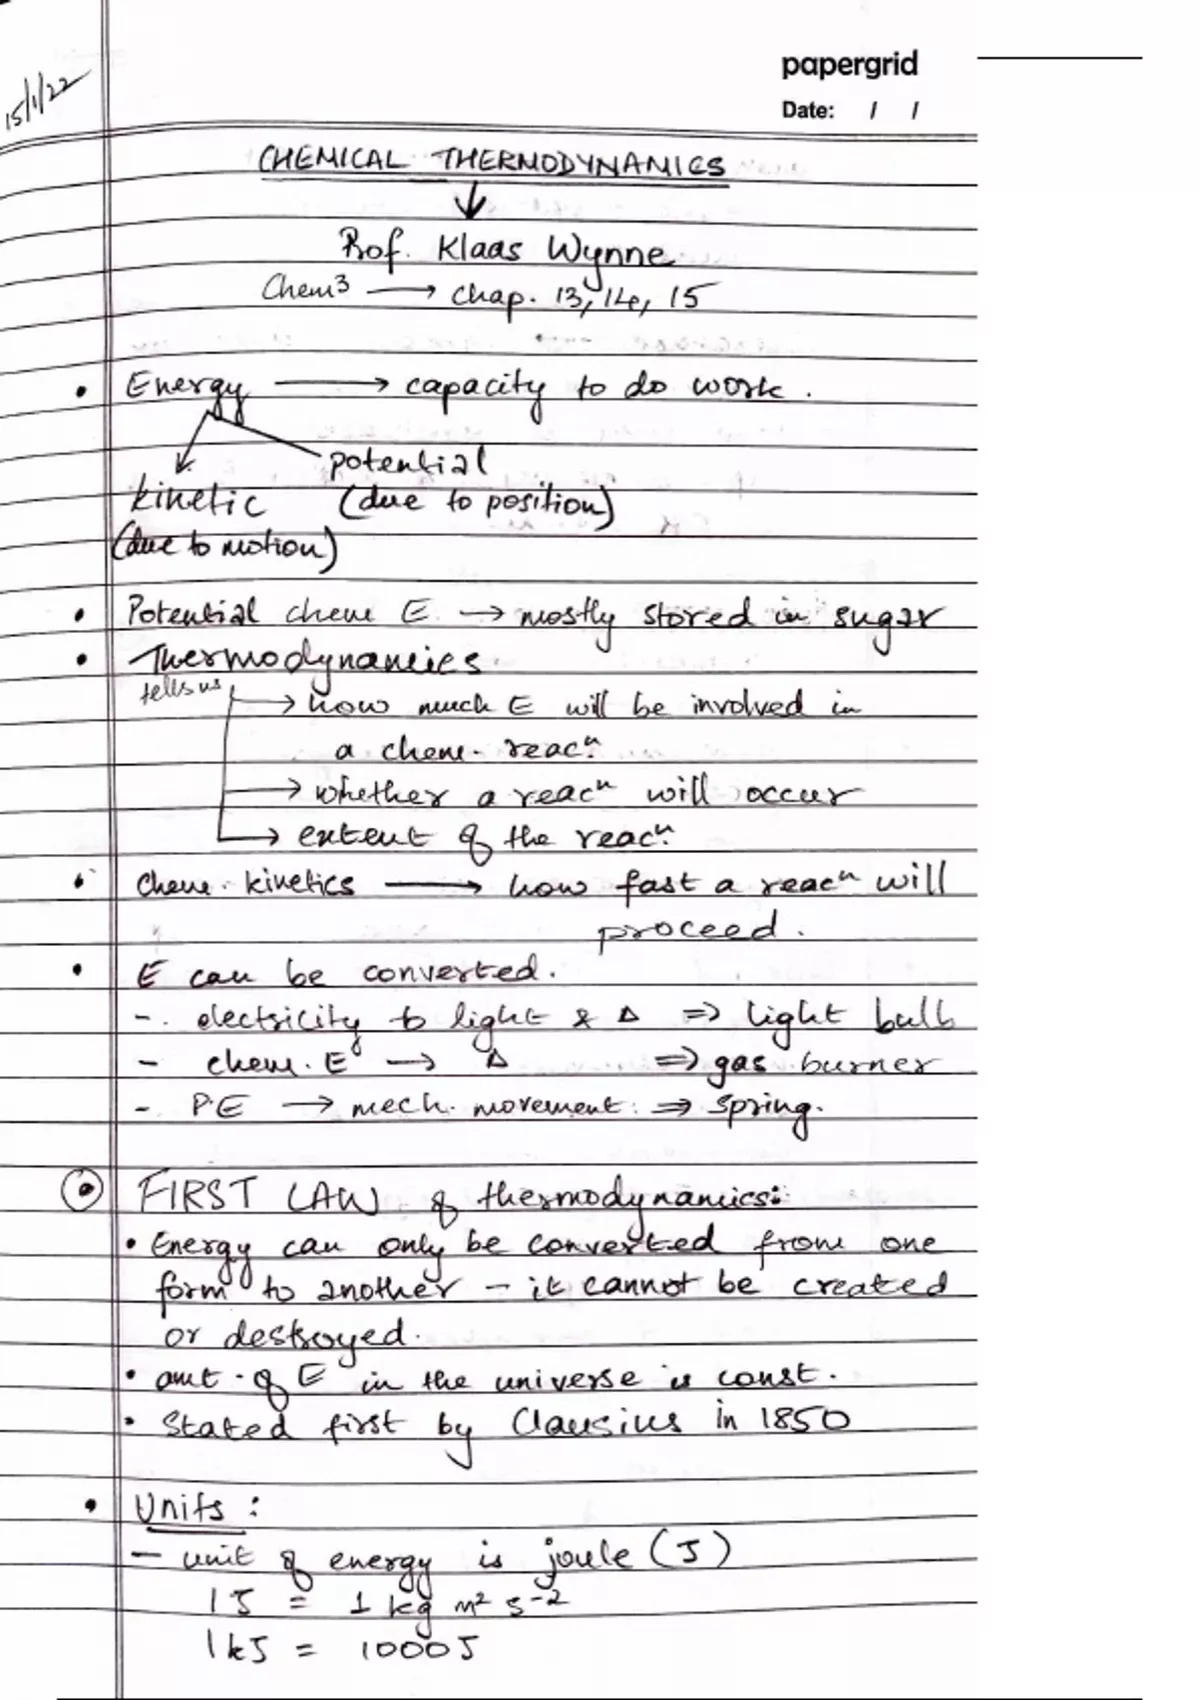 papergrid
Date: / /
15/1/22
CHEMICAL THERMODYNAMICS
↓
Prof. Klaas Wynne
Chem3 → chap. 13, 14, 15
• Energy → capacity to do work.
potential
kinetic (due to position)
(due to motion)
• Potential chem E. → mostly stored in sugar
• Thermodynamics
tells us
→ how much E will be involved in
a chem. reacⁿ.
→ whether a reacⁿ will occur
→ extent of the reacⁿ.
• chem. kinetics → how fast a reacⁿ will
proceed.
• E can be converted.
- electricity to light & Δ ⇒ light bulb
- chem. E → Δ ⇒ gas burner
- P.E → mech. movement ⇒ spring.
⊙ FIRST LAW of thermodynamics:
• Energy can only be converted from one
form to another – it cannot be created
or destroyed.
• amt. of E in the universe is const.
• Stated first by Clausius in 1850
• Units :
– unit of energy is joule (J)
1J = 1 kg m² s⁻²
1kJ = 1000J